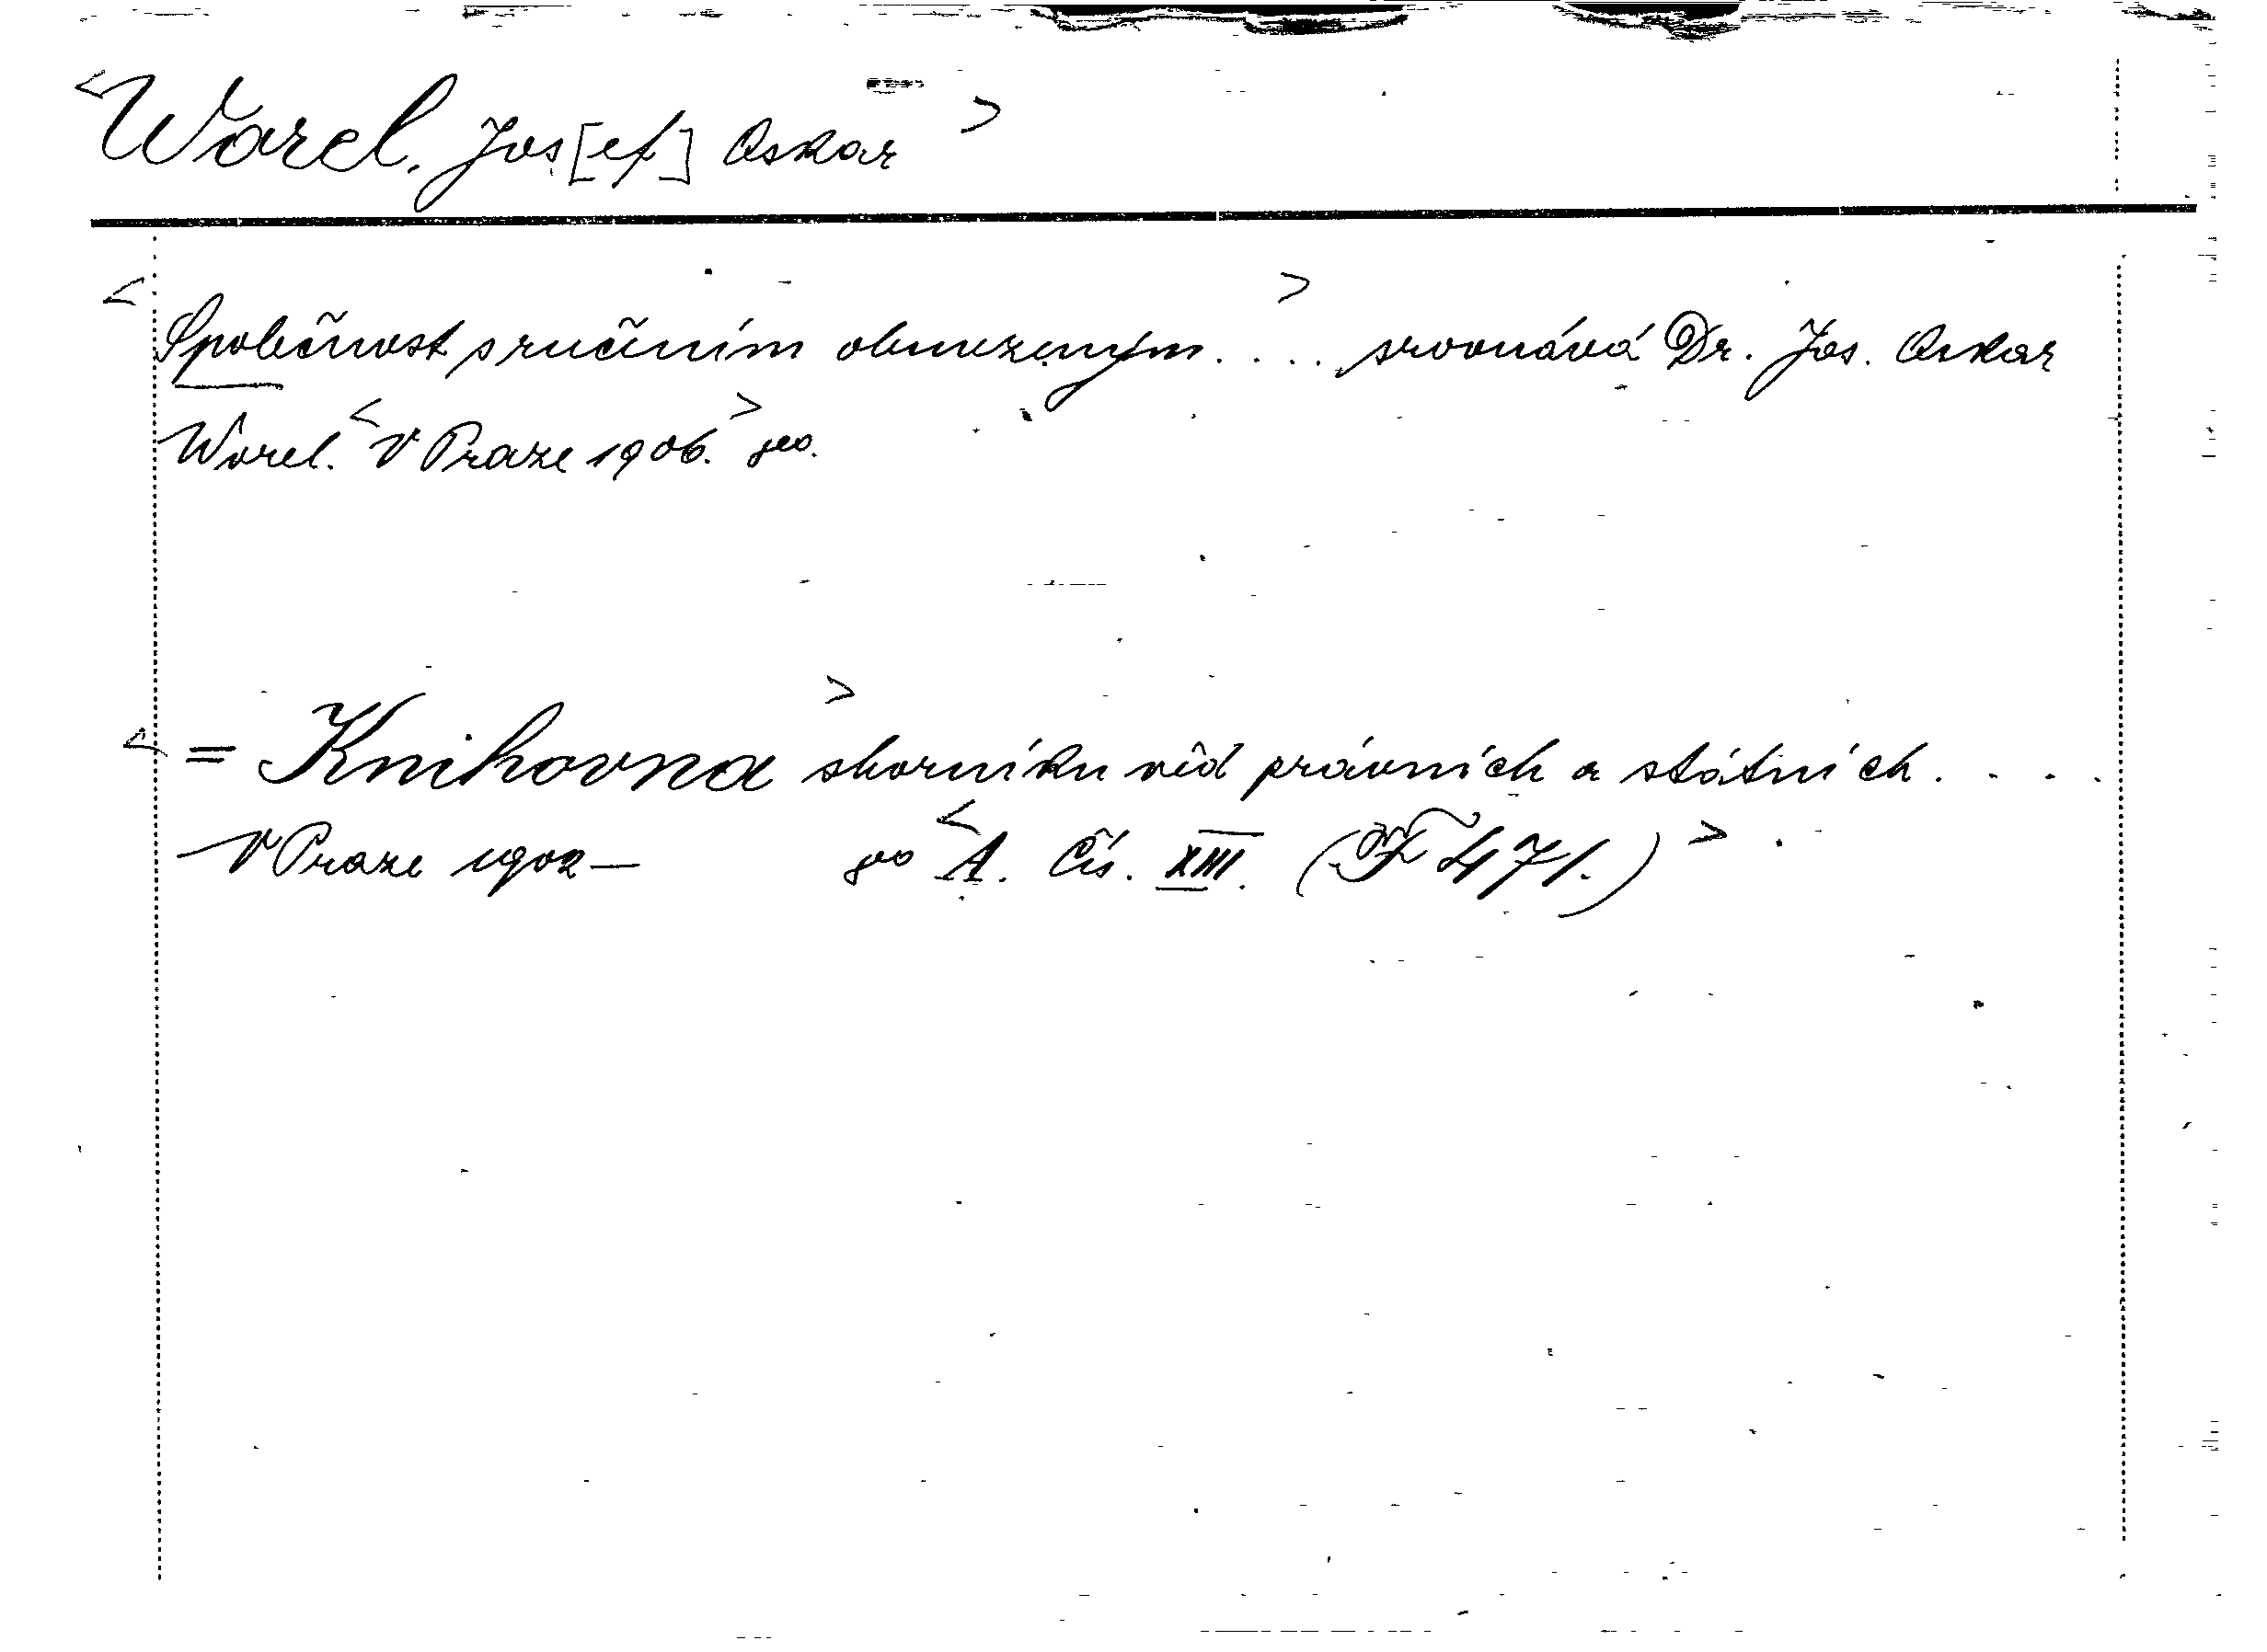 <Worel, Jos[ef] Oskar>
<Společnost s ručením obmezeným....> srovnává Dr. Jos. Oskar
Worel. <V Praze 1906.> 8vo.
<= Knihovna> sborníku věd právních a státních....
V Praze 1902— 8vo <A. Čís. XIII. (F 471.)>.